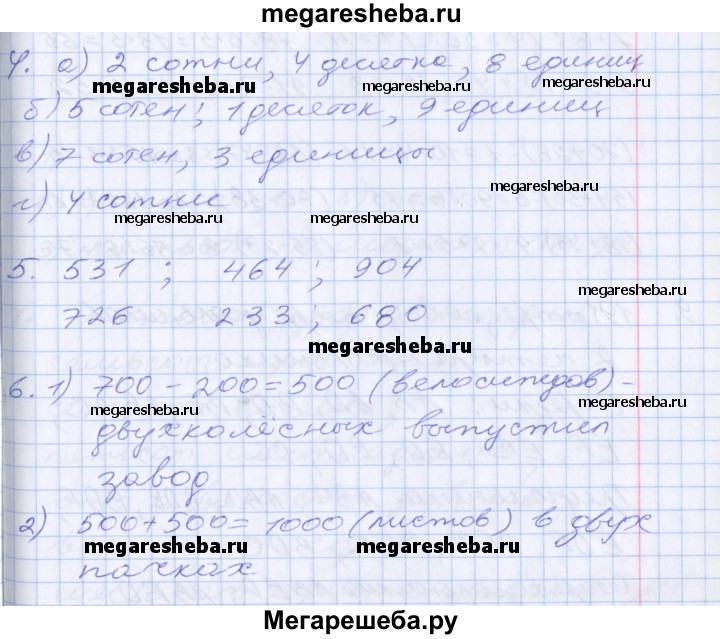 megaresheba.ru
4. а) 2 сотни, 4 десятка, 8 единиц
megaresheba.ru megaresheba.ru
б) 5 сотен; 1 десяток, 9 единиц
megaresheba.ru
в) 7 сотен, 3 единицы
megaresheba.ru
г) 4 сотни
megaresheba.ru megaresheba.ru
5. 531 ; 464 ; 904
megaresheba.ru
726 233 ; 680
megaresheba.ru
6. 1) 700 - 200 = 500 (велосипедов) -
megaresheba.ru megaresheba.ru
двухколёсных выпустил
завод
2) 500 + 500 = 1000 (листов) в двух
megaresheba.ru megaresheba.ru
пачках
Мегарешеба.ру